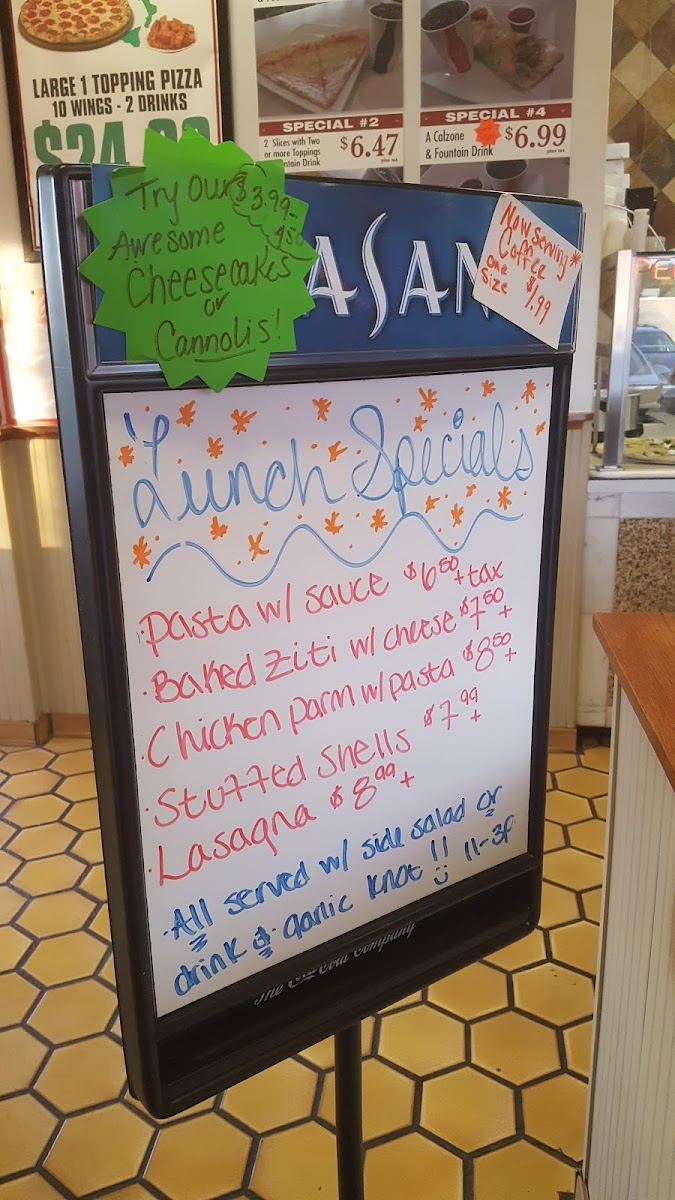 LARGE 1 TOPPING PIZZA
10 WINGS - 2 DRINKS
SPECIAL #2
2 Slices with Two
or more Toppings
ntain Drink
$6.47
plus tax
SPECIAL #4
A Calzone
& Fountain Drink
$6.99
plus tax
Try Our $3.99-
4.50
Awesome
Cheesecakes
or
Cannolis!
ASAN
Now Serving
Coffee
one
size
$1.99
Lunch Specials
·Pasta w/ sauce $6.50 + tax
·Baked Ziti w/ cheese $7.50 +
·Chicken parm w/pasta $8.50 +
·Stuffed Shells $7.99 +
·Lasagna $8.99 +
·All served w/ side salad or
drink & garlic knot!! 11-3p
The Coca-Cola Company